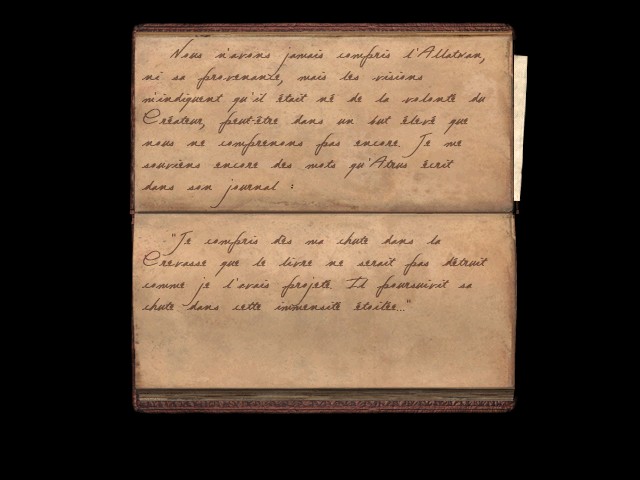 Nous n'avons jamais compris l'Allatwan,
ni sa provenance, mais les visions
m'indiquent qu'il était né de la volonté du
Créateur, peut-être dans un but élevé que
nous ne comprenons pas encore. Je me
souviens encore des mots qu'Atrus écrit
dans son journal :
"Je compris dès ma chute dans la
Crevasse que le livre ne serait pas détruit
comme je l'avais projeté. Il poursuivit sa
chute dans cette immensité étoilée..."